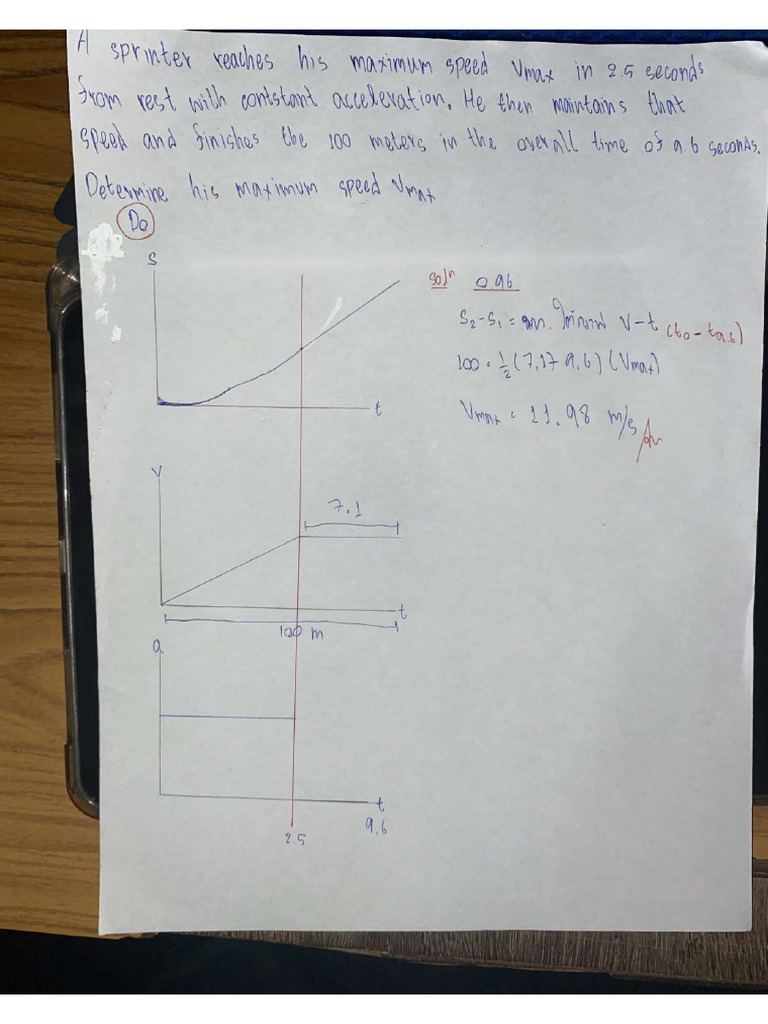 A sprinter reaches his maximum speed Vmax in 2.5 seconds
from rest with contstant acceleration. He then maintains that
speed and finishes the 100 meters in the overall time of 9.6 seconds.
Determine his maximum speed Vmax
Do
s
t
solⁿ 0.96
S₂-S₁ = พท. ใต้กราฟ V-t (t₀ - t₉.₆)
100 = ½ (7.1+9.6) (Vmax)
Vmax = 11.98 m/s
v
7.1
t
100 m
a
t
9.6
2.5